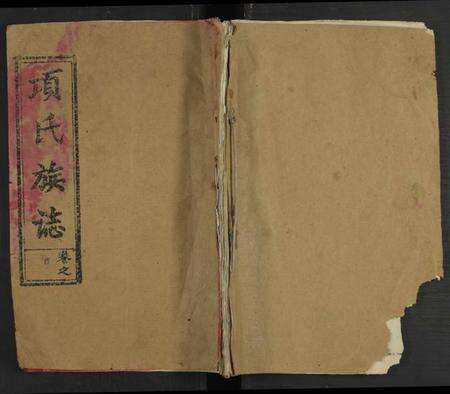 項氏族誌
卷之